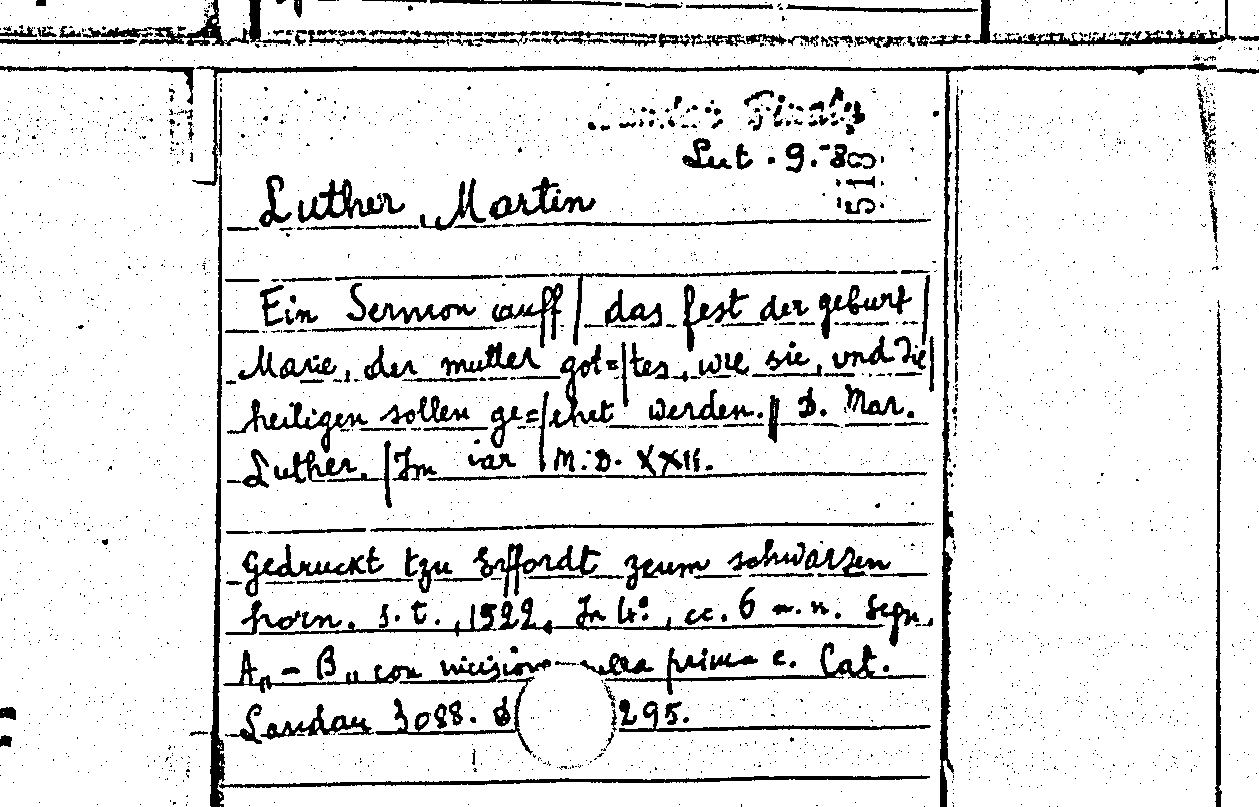 Landau Finaly
Lut. 9.-8
518
Luther, Martin
Ein Sermon auff | das fest der geburt |
Marie, der mutter got=|tes, wie sie, und die |
heiligen sollen ge=|ehet werden. || D. Mar.
Luther. | Im iar | M.D. XXII.
Gedruckt tzu Erffordt zcum schwarzen
horn. s. t., 1522. In 4°, cc. 6 n. n. Segn.
A - B con incisione nella prima c. Cat.
Landau 3088. 295.